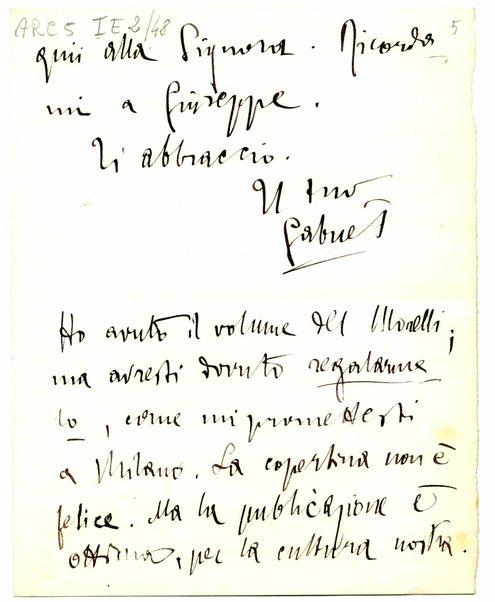 ARC 5 I E 2/48
5
qui alla Signora. Ricorda
mi a Giuseppe.
Ti abbraccio.
Il tuo
Gabriel
Ho avuto il volume del Morelli;
ma avresti dovuto regalarme
lo, come mi promettesti
a Milano. La copertina non è
felice. Ma la publicazione è
ottima, per la cultura nostra.